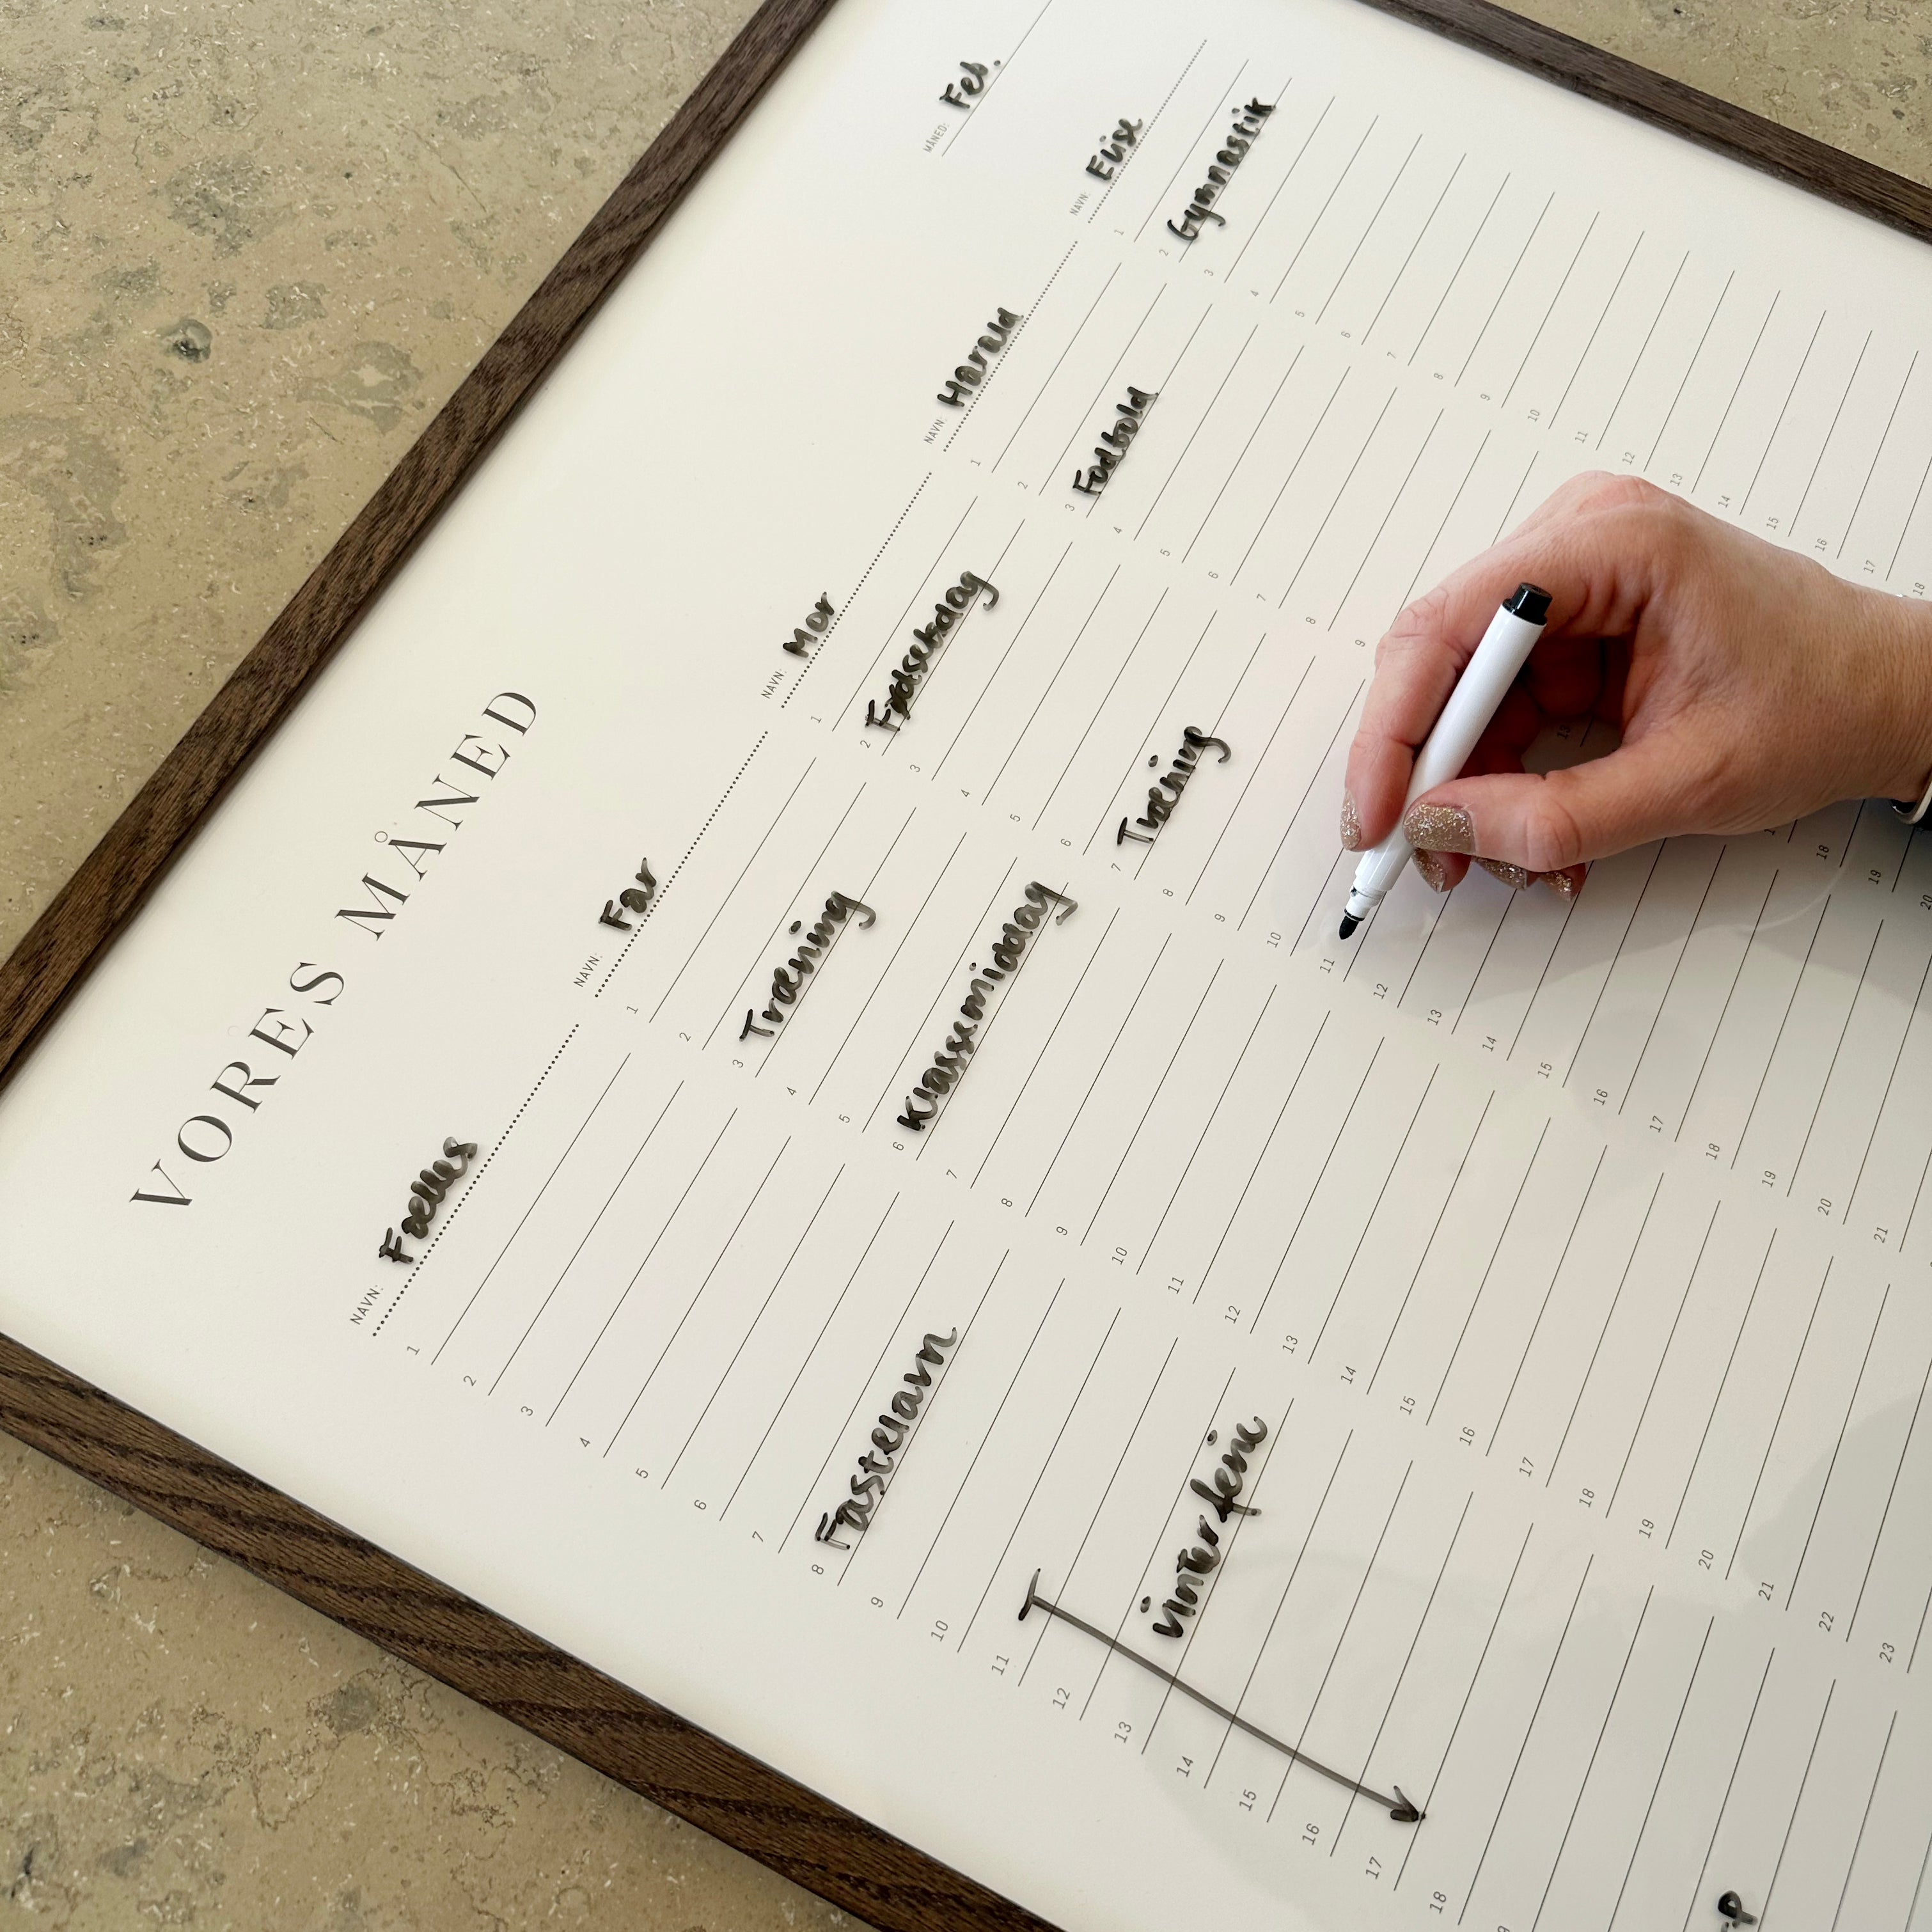 VORES MÅNED
MÅNED: Feb.
NAVN: Fælles
1
2
3
4
5
6
7
8 Fastelavn
9
10
11
12
13 vinterferie
14
15
16
17
18
NAVN: Far
1
2
3 Træning
4
5
6 Klassemiddag
7
8
9
10
11
12
13
14
15
16
17
18
19
20
21
22
23
NAVN: Mor
1
2 Fødselsdag
3
4
5
6
7 Træning
8
9
10
11
12
13
14
15
16
17
18
19
20
21
NAVN: Harald
1
2
3 Fodbold
4
5
6
7
8
9
18
19
20
NAVN: Elise
1
2 Gymnastik
3
4
5
6
7
8
9
10
11
12
13
14
15
16
17
18